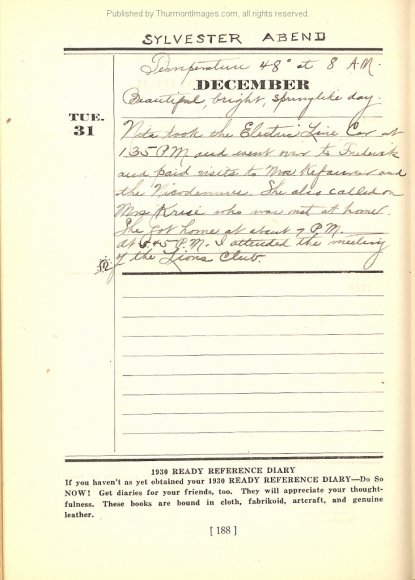 Published by ThurmontImages.com, all rights reserved.
SYLVESTER ABEND
Temperature 48° at 8 A.M.
DECEMBER
Beautiful, bright, springlike day.
TUE.
31
took the Electric Line Car at
1.35 P.M. and went over to Frederick
and paid visits to Mrs Kefauver and
the Nicodemuses. She also called on
Mrs Kruse who was not at home.
She got home at about 7 P.M.
At 5.45 P.M. I attended the meeting
of the Lions Club.
1930 READY REFERENCE DIARY
If you haven't as yet obtained your 1930 READY REFERENCE DIARY—Do So
NOW! Get diaries for your friends, too. They will appreciate your thought-
fulness. These books are bound in cloth, fabrikoid, artcraft, and genuine
leather.
[ 188 ]